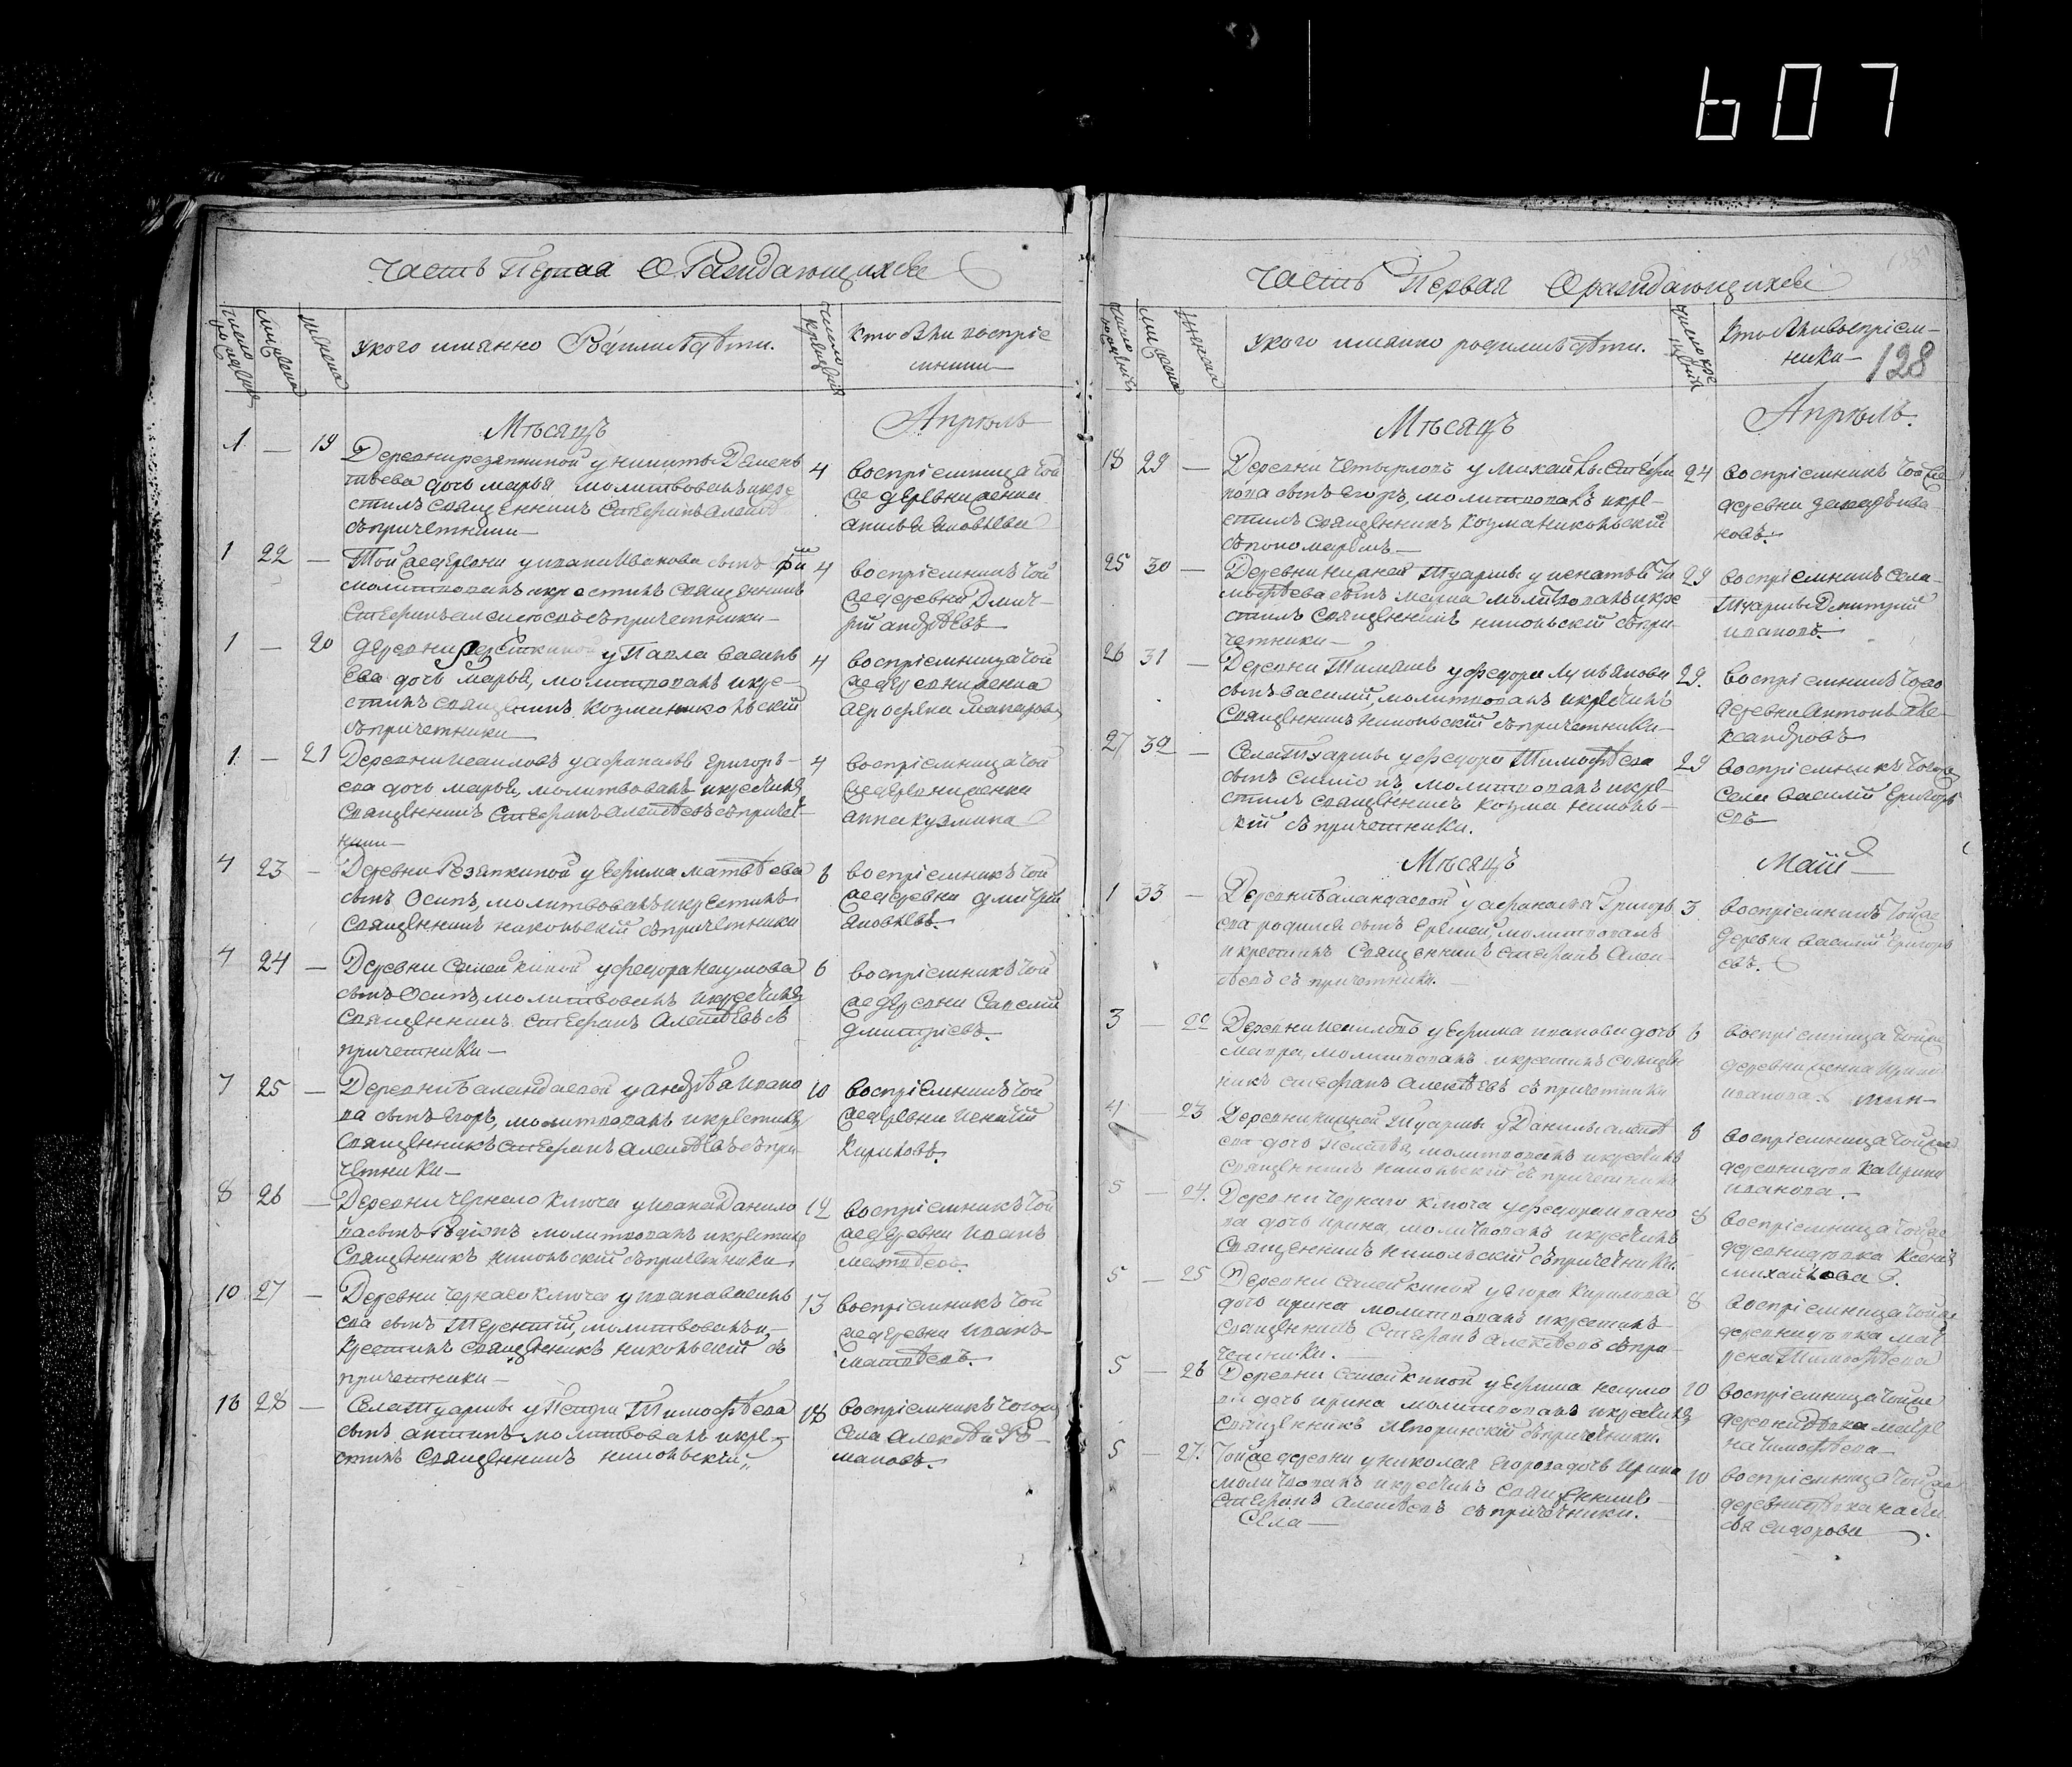 607
Часть Первая О Раждающихся
число рождения
мужеска
женска
Укого имянно Родились дѣти.
число крещения
Кто были воспріе
мники
Мѣсяцъ
Апрѣль
1 — 19 Деревни резяпкиной у никиты Демень
тьева дочь марья молитвовалъ икре
стилъ Священникъ Стефанъ Алекс
съпричетники —
4 воспріемница той
же деревни женка
Яковлева
1 22 — Той же деревни у ивана Иванова сынъ
молитвовалъ и крестилъ священникъ
Стефанъ алексѣевъ съпричетники —
4 воспріемникъ той
же деревни Дмит-
рій андрѣевъ
1 — 20 деревни у Павла Василь
ева дочь марья, молитвовалъ икре-
стилъ священникъ Козма никольскій
съпричетники
4 воспріемница той
же деревни женка
макарова
1 — 21 Деревни у афанасья Григорь-
ева дочь марья, молитвовалъ и крестилъ
Священникъ Стефанъ Алексѣевъ съпричет-
ники —
4 воспріемница той
же деревни женка
анна кузмина
4 23 — Деревни Резяпкиной у Ефима матвѣева
сынъ Осипъ, молитвовалъ икрестилъ
Священникъ никольскій съпричетники
6 воспріемникъ той
же деревни дмитрій
Яковлевъ.
4 24 — Деревни Семейкиной у федора Наумова
сынъ Осипъ, молитвовалъ икрестилъ
Священникъ Стефанъ Алексѣевъ съ
причетники —
6 воспріемникъ той
же деревни Савелій
дмитріевъ.
7 25 — Деревни Баландаевой у андрѣя Ивано
ва сынъ Егоръ, молитвовалъ икрестилъ
Священникъ Стефанъ Алексѣевъ съпри
четники —
10 воспріемникъ той
же деревни Игнатій
Кириловъ.
8 26 — Деревни Чернаго Ключа у ивана Данило
ва сынъ Родіонъ молитвовалъ икрестилъ
Священникъ никольскій съпричетники
12 воспріемникъ той
же деревни Иванъ
матвѣевъ.
10 27 — Деревни Чернаго Ключа у ивана Василь
ева сынъ Терентій, молитвовалъ и-
Крестилъ Священникъ никольскій съ
причетники —
13 воспріемникъ той
же деревни Иванъ
матвѣевъ.
16 28 — Села Туармы у Петра Тимофѣева
сынъ антипъ молитвовалъ икре-
стилъ Священникъ никольскій
18 воспріемникъ тогоже
села Алексѣй Ро-
мановъ.
Часть Первая О раждающихся
128
число рождения
мужеска
женска
Укого имянно родились дѣти.
число крещения
Кто были воспріем-
ники —
Мѣсяцъ
Апрѣль.
18 29 — Деревни Четырлолъ у михайлы Стефа
нова сынъ Егоръ, молитвовалъ икре-
стилъ Священникъ Козма никольскій
съпономаремъ —
24 воспріемникъ тойже
деревни ива
новъ.
25 30 — Деревни нижней Туармы у игнатья Ти
мофѣева сынъ марка молитвовалъ икре
стилъ Священникъ никольскій съпри-
четники —
29 воспріемникъ села
Туармы Дмитрий
ивановъ
26 31 — Деревни Тимяшъ у федора Лукьянова
сынъ Василий, молитвовалъ икрестилъ
Священникъ никольскій съпричетники —
29. воспріемникъ
деревни Антонъ але-
ксандровъ
27 32 — Села Туармы у федора Тимофѣева
сынъ симионъ молитвовалъ икре-
стилъ священникъ козма николь-
скій съпричетники.
29 воспріемникъ тогоже
села василій Григорь
евъ
Мѣсяцъ
Маій
1 33 — Деревни Баландаевой у афанасья Григорь
ева родился сынъ Еремей, молитвовалъ
и крестилъ Священникъ Стефанъ Алек-
сѣевъ съ причетники. —
3 воспріемникъ тойже
деревни василій Григорь
евъ.
3 — 22 Деревни у Ефима иванова дочь
мавра, молитвовалъ икрестилъ священ
никъ стефанъ алексѣевъ съ причетники
6 воспріемница тойже
деревни женка Ирина
иванова.
4 — 23 Деревни нижней Туармы у Данилы алексѣ
ева дочь Пелагея, молитвовалъ икрестилъ
Священникъ никольскій съпричетники
8 воспріемница тойже
деревни дѣвка Ирина
иванова.
5 — 24. Деревни Чернаго ключа у федора ивано
ва дочь ирина, молитвовалъ икрестилъ
Священникъ Никольскій съпричетники.
8 воспріемница тойже
деревни дѣвка Ксенія
михайлова.
5 — 25 Деревни Семейкиной у Егора Кирилова
дочь ирина молитвовалъ икрестилъ
Священникъ Стефанъ Алексѣевъ съпри-
четники.
8 воспріемница тойже
деревни дѣвка мат
рена Тимофѣева
5 — 26 Деревни Семейкиной у Ефима наумо
ва дочь ирина молитвовалъ икрестилъ
Священникъ съпричетники.
10 воспріемница тойже
деревни дѣвка матре
на тимофѣева —
5 — 27. Тойже деревни у николая Егорова дочь Ирина
молитвовалъ икрестилъ Священникъ
Стефанъ Алексѣевъ съпричетники.
Села —
10 воспріемница тойже
деревни дѣвка
сидорова